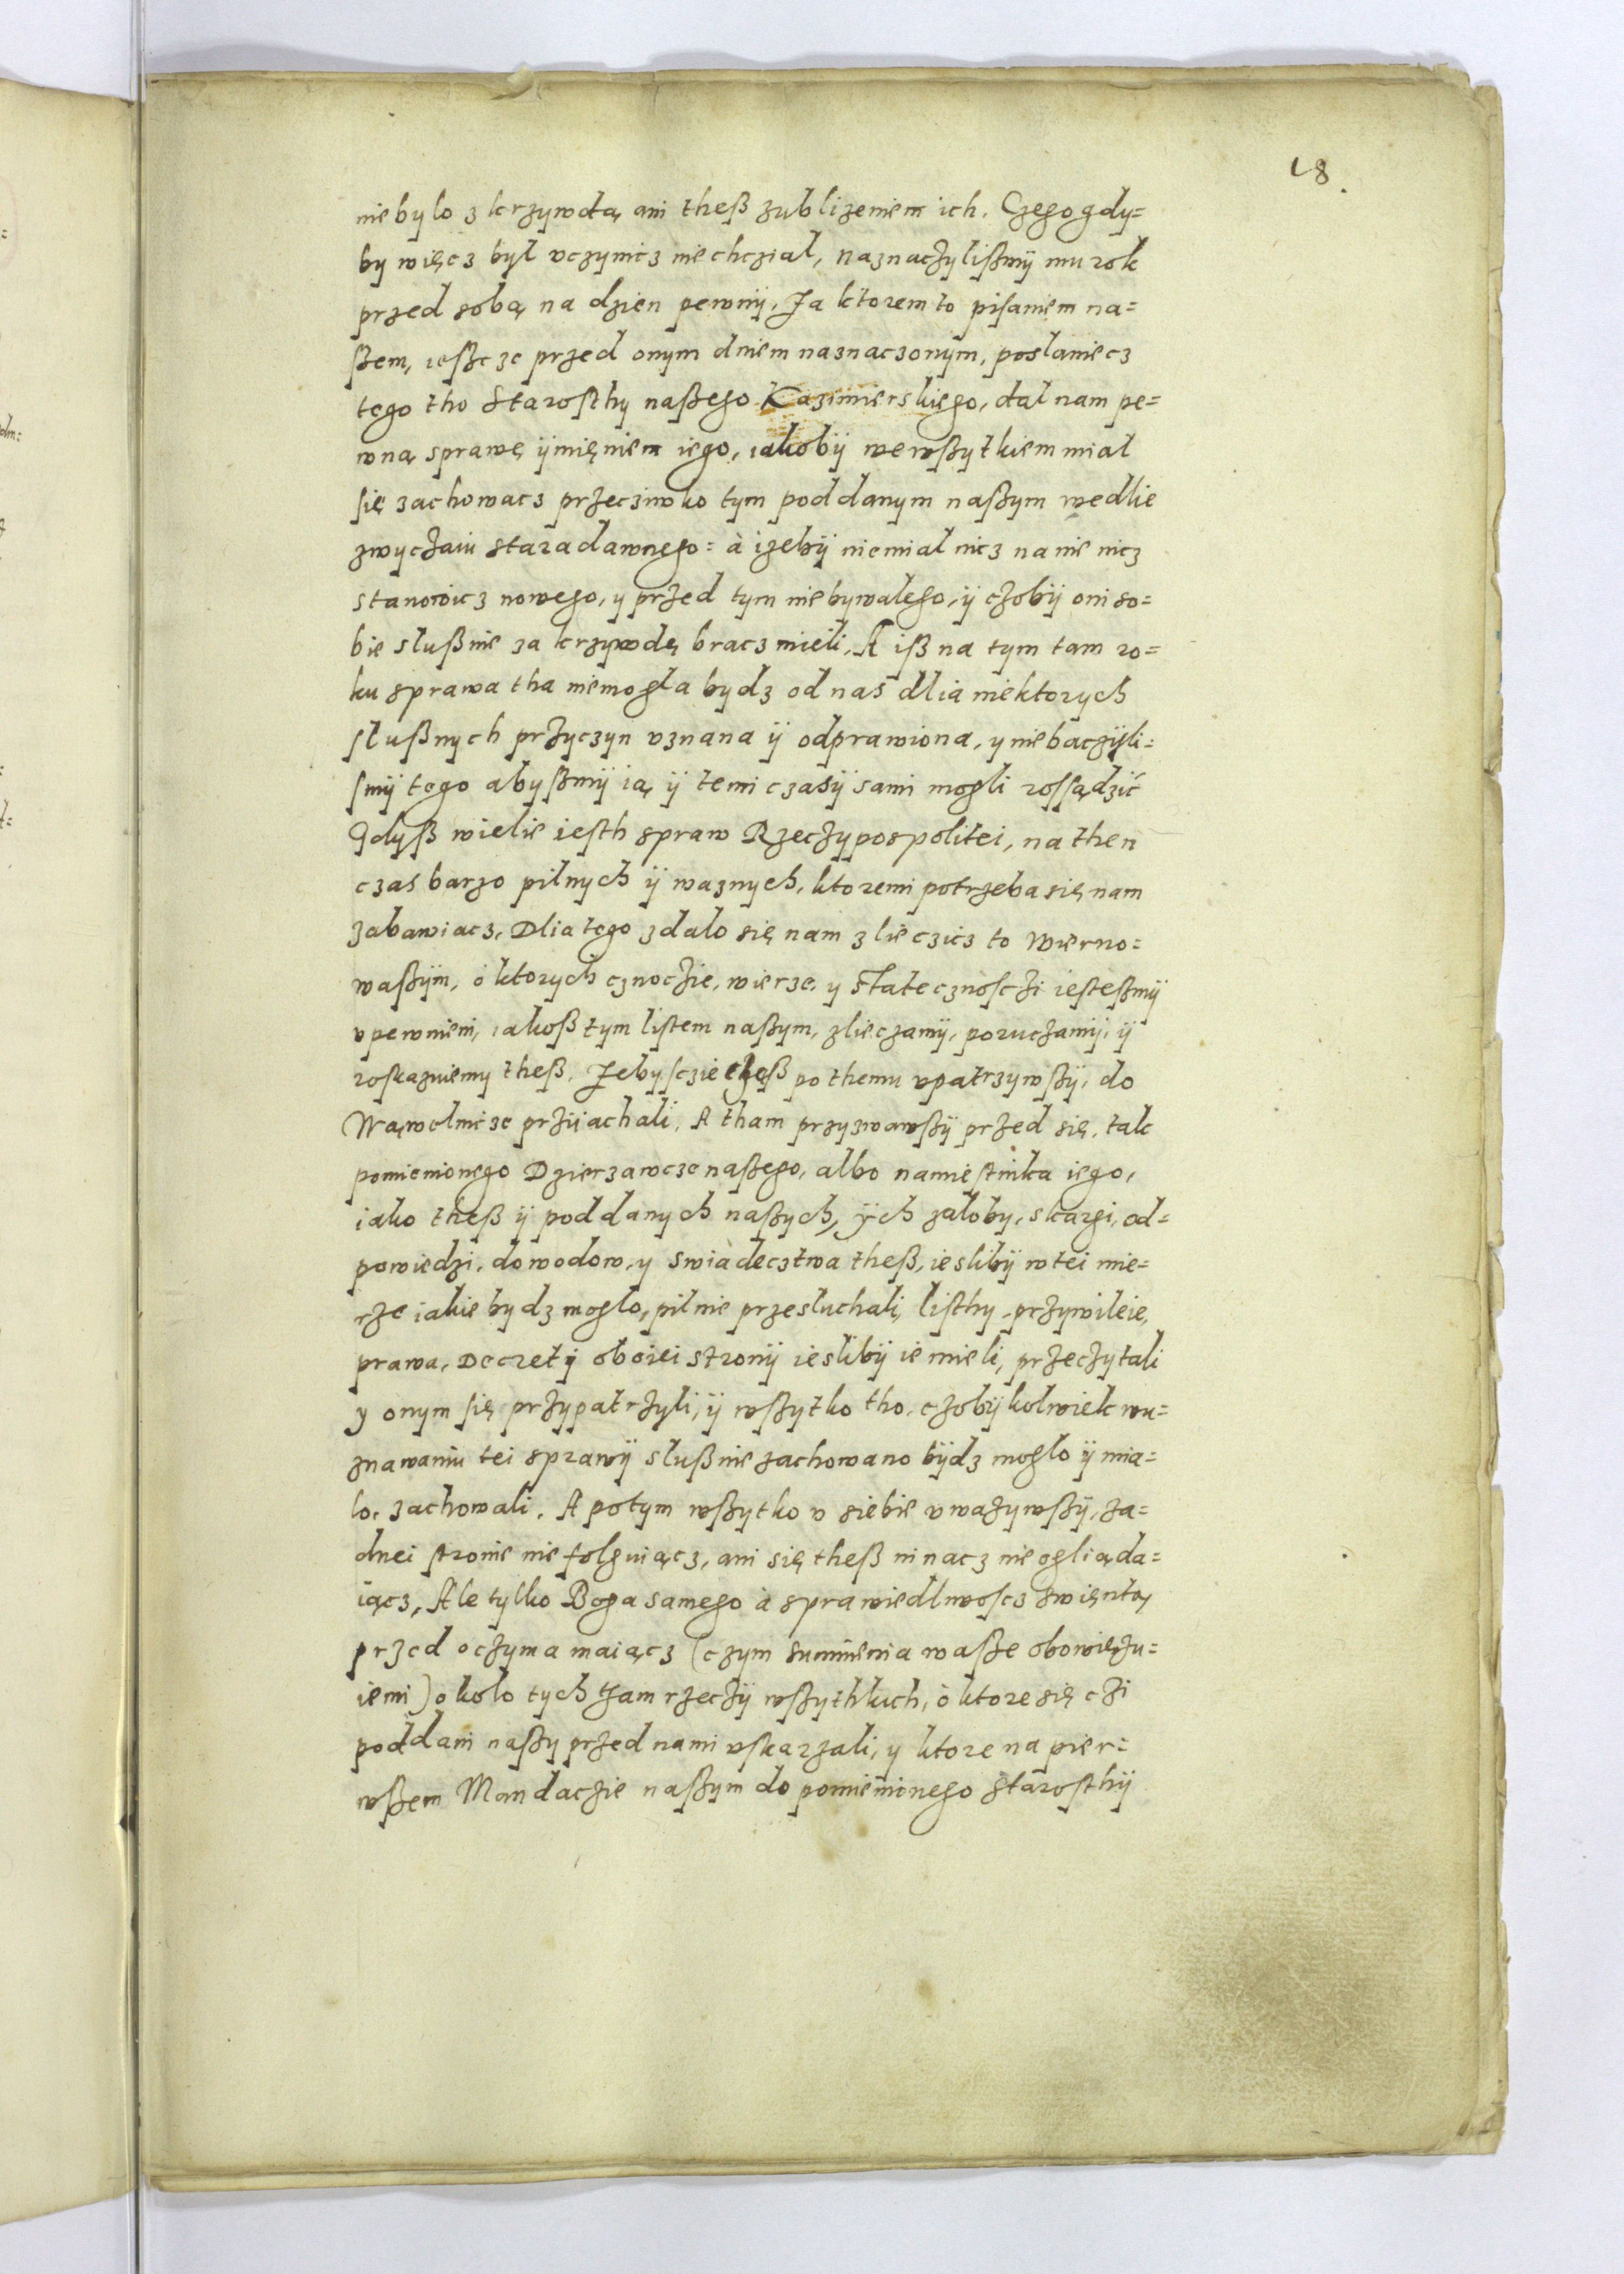 18.
nie bylo z krzywdą ani theß zubliżeniem ich. Czego gdy=
by więcz był uczynicz nie chczial, naznaczylißmÿ mu rok
przed sobą na dzien pewnÿ. Za ktorem to pisaniem na=
ßem, ießcze przed onym dniem naznaczonym, poslaniecz
tego tho Starosthy naßego Kazimierskiego, dal nam pe=
wną sprawę ÿmięniem iego, iakobÿ we wßytkiem miał
się zachowacz przecziwko tym poddanym naßym wedlie
zwyczaiu staradawnego: à iżebÿ niemial nicz na nie nicz
stanowicz nowego, y przed tym niebywalego, ÿ czobÿ oni so=
bie slußnie za krzywdę bracz mieli. A iß na tym tam ro=
ku sprawa tha niemogla bydz od nas dlia niektorych
slußnych przyczyn uznana ÿ odprawiona, y niebaczÿli=
smÿ tego abyßmÿ ią ÿ temi czasÿ sami mogli rossądzić
Gdyß wielie iesth spraw Rzeczypospolitei, na then
czas barzo pilnych ÿ waznych, ktoremi potrzeba się nam
zabawiacz, Dlia tego zdalo się nam zlieczicz to Wierno=
waßÿm, o ktorych cznoczie, wierze, y statecznosczi iesteßmÿ
upewnieni, iakoß tym listem naßym, zlieczamÿ, poruczamÿ, ÿ
roskazuiemy theß. Zebysczie po themu upatrzywßÿ, do
Wąwelnicze przÿiachali, A tham przyzwawßÿ przed się, tak
pomienionego Dzierzawcze naßego, albo namiestnika iego,
iako theß ÿ poddanych naßych, ÿch żaloby, skargi, od=
powiedzi, dowodow, y swiadecztwa theß, ieslibÿ w tei mie=
rze iakie bydz moglo, pilnie przesluchali, listhy, przywileie,
prawa, Decretÿ oboiei stronÿ ieslibÿ ie mieli, przeczytali
y onym się przypatrzyli, ÿ wßytko tho, czobÿkolwiek wu=
znawaniu tei sprawÿ slußnie zachowano bÿdz moglo ÿ mia=
lo, zachowali. A potym wßytko u siebie uważywßÿ, ża=
dnei stronie nie folguiącz, ani się theß ninacz nie ogliąda=
iącz, Ale tylko Boga samego à sprawiedlwoscz swiętą
przed oczyma maiącz (czym sumnienia waße obowięzu=
iemi) okolo tych tham rzeczÿ wßythkich, o ktore się czi
poddani naßy przed nami uskarzali, y ktore na pier=
wßem Mandaczie naßym do pomienionego Starosthÿ